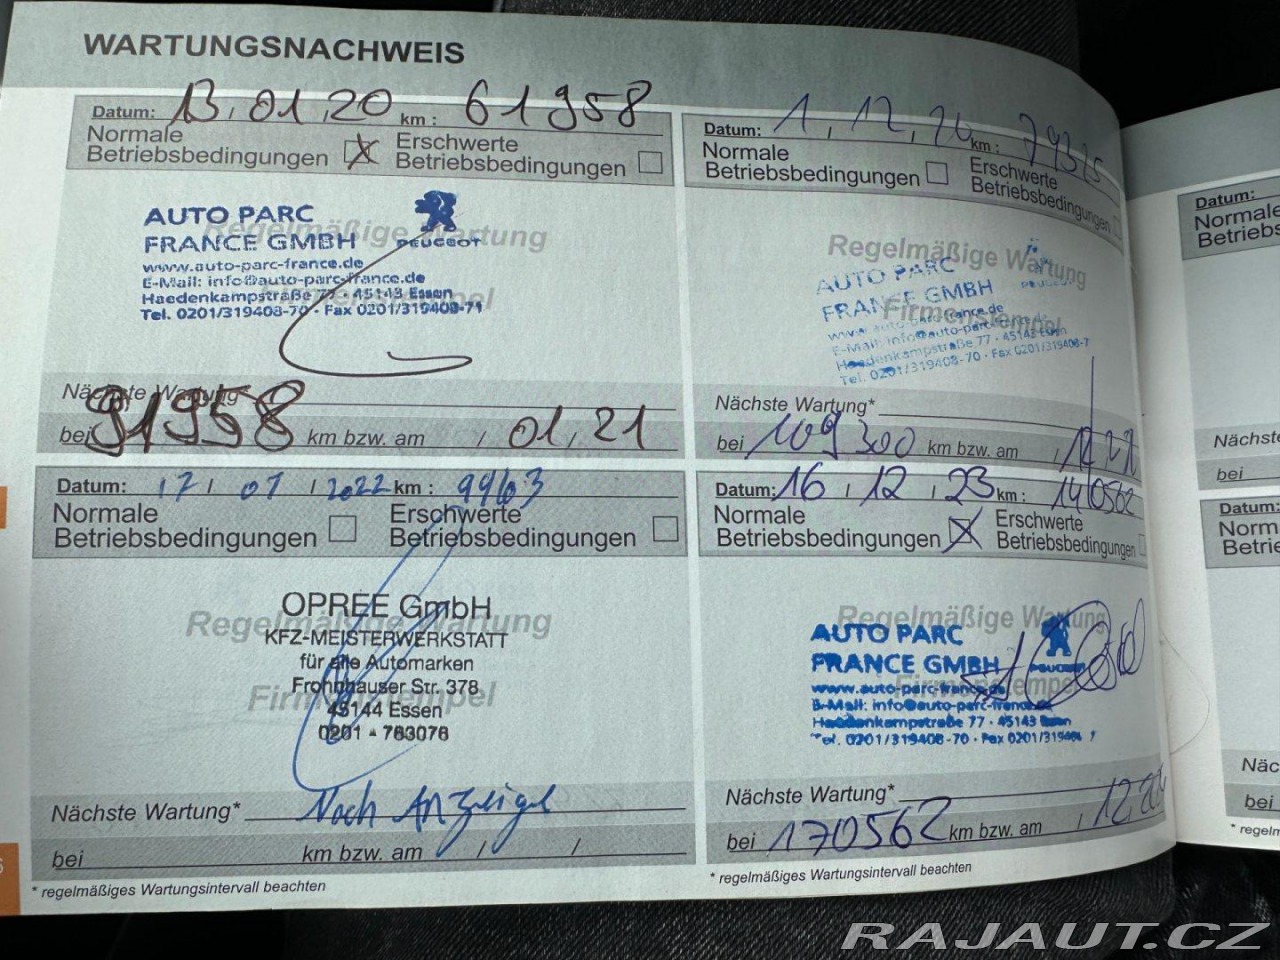 WARTUNGSNACHWEIS
Datum: 13, 01, 20 km : 61958
Normale
Betriebsbedingungen
Erschwerte
Betriebsbedingungen
AUTO PARC
FRANCE GMBH
PEUGEOT
www.auto-parc-france.de
E-Mail: info@auto-parc-france.de
Haedenkampstraße 77 · 45143 Essen
Tel. 0201/319408-70 · Fax 0201/319408-71
Regelmäßige Wartung
Firmenstempel
Nächste Wartung
bei 91958 km bzw. am / 01, 21
Datum: 1, 12, 20 km : 79325
Normale
Betriebsbedingungen
Erschwerte
Betriebsbedingungen
Regelmäßige Wartung
AUTO PARC
FRANCE GMBH
Firmenstempel
www.auto-parc-france.de
E-Mail: info@auto-parc-france.de
Haedenkampstraße 77 · 45143 Essen
Tel. 0201/319408-70 · Fax 0201/319408-7
Nächste Wartung*
bei 109300 km bzw. am / 12, 21
Datum: 17 / 01 / 2022 km : 9963
Normale
Betriebsbedingungen
Erschwerte
Betriebsbedingungen
OPREE GmbH
Regelmäßige Wartung
KFZ-MEISTERWERKSTATT
für alle Automarken
Frohnhauser Str. 378
Firmenstempel
45144 Essen
0201 - 763076
Nächste Wartung* Nach Anzeige
bei km bzw. am / /
* regelmäßiges Wartungsintervall beachten
Datum: 16 / 12 , 23 km : 140562
Normale
Betriebsbedingungen
Erschwerte
Betriebsbedingungen
Regelmäßige Wartung
AUTO PARC
FRANCE GMBH
PEUGEOT
www.auto-parc-france.de
Firmenstempel
E-Mail: info@auto-parc-france.de
Haedenkampstraße 77 · 45143 Essen
Tel. 0201/319408-70 · Fax 0201/319408-7
Nächste Wartung*
bei 170562 km bzw. am / 12,
* regelmäßiges Wartungsintervall beachten
Datum:
Normale
Betriebs
Nächste
bei
Datum:
Norm
Betrie
Näc
bei
* regelm
RAJAUT.CZ